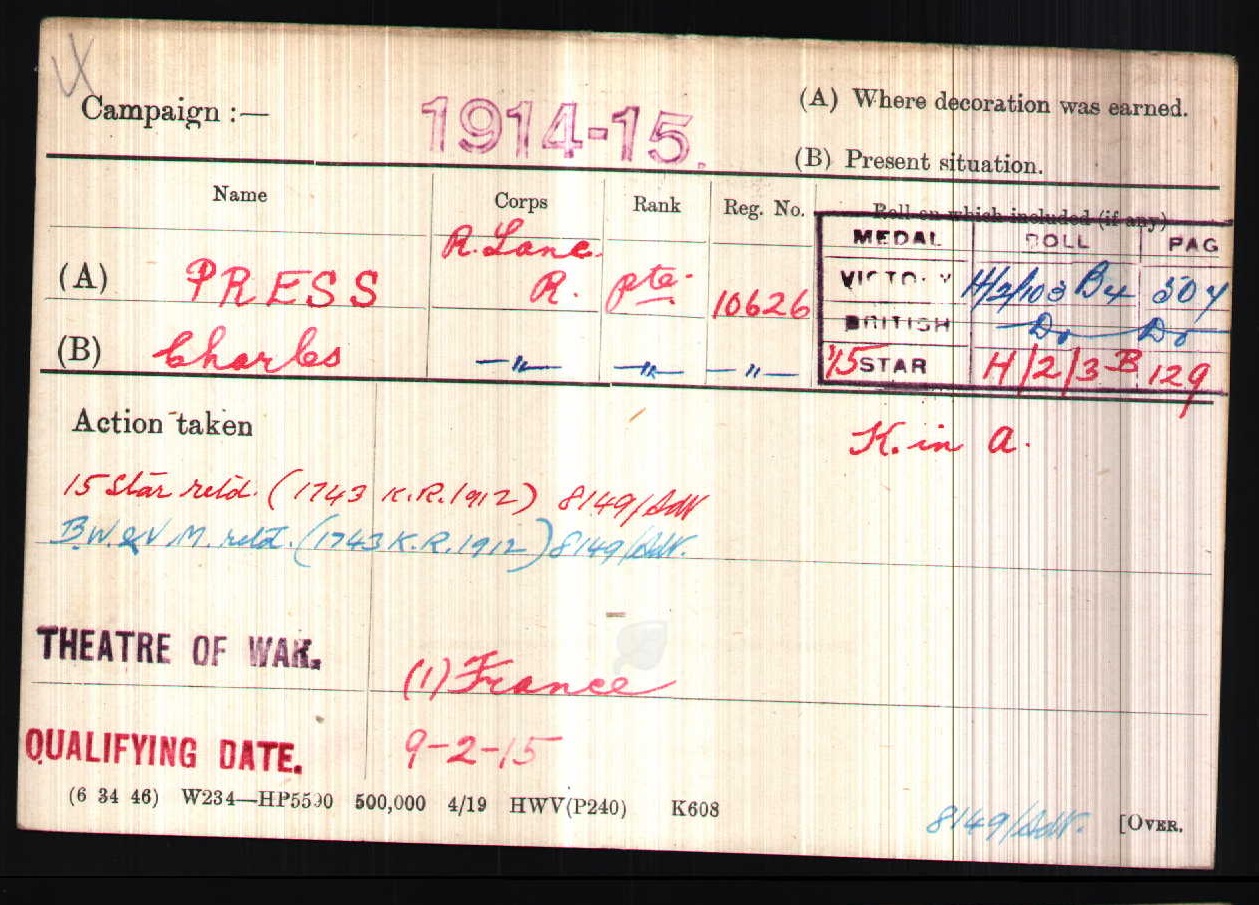 Campaign :—
1914-15.
(A) Where decoration was earned.
(B) Present situation.
Name Corps Rank Reg. No. Roll on which included (if any)
MEDAL ROLL PAG
(A) PRESS R. Lanc. R. Pte. 10626
VICTORY H/2/103 B4 504
BRITISH — Do — Do
(B) Charles —"— —"— —"—
'15 STAR H/2/3 B 129
Action taken
K. in a.
15 Star retd. (1743 K.R. 1912) 8149/Adt
B.W. & V.M. retd. (1743 K.R. 1912) 8149/Adt.
THEATRE OF WAR. (1) France
QUALIFYING DATE. 9-2-15
(6 34 46) W234—HP5590 500,000 4/19 HWV(P240) K608
8149/Adt. [OVER.